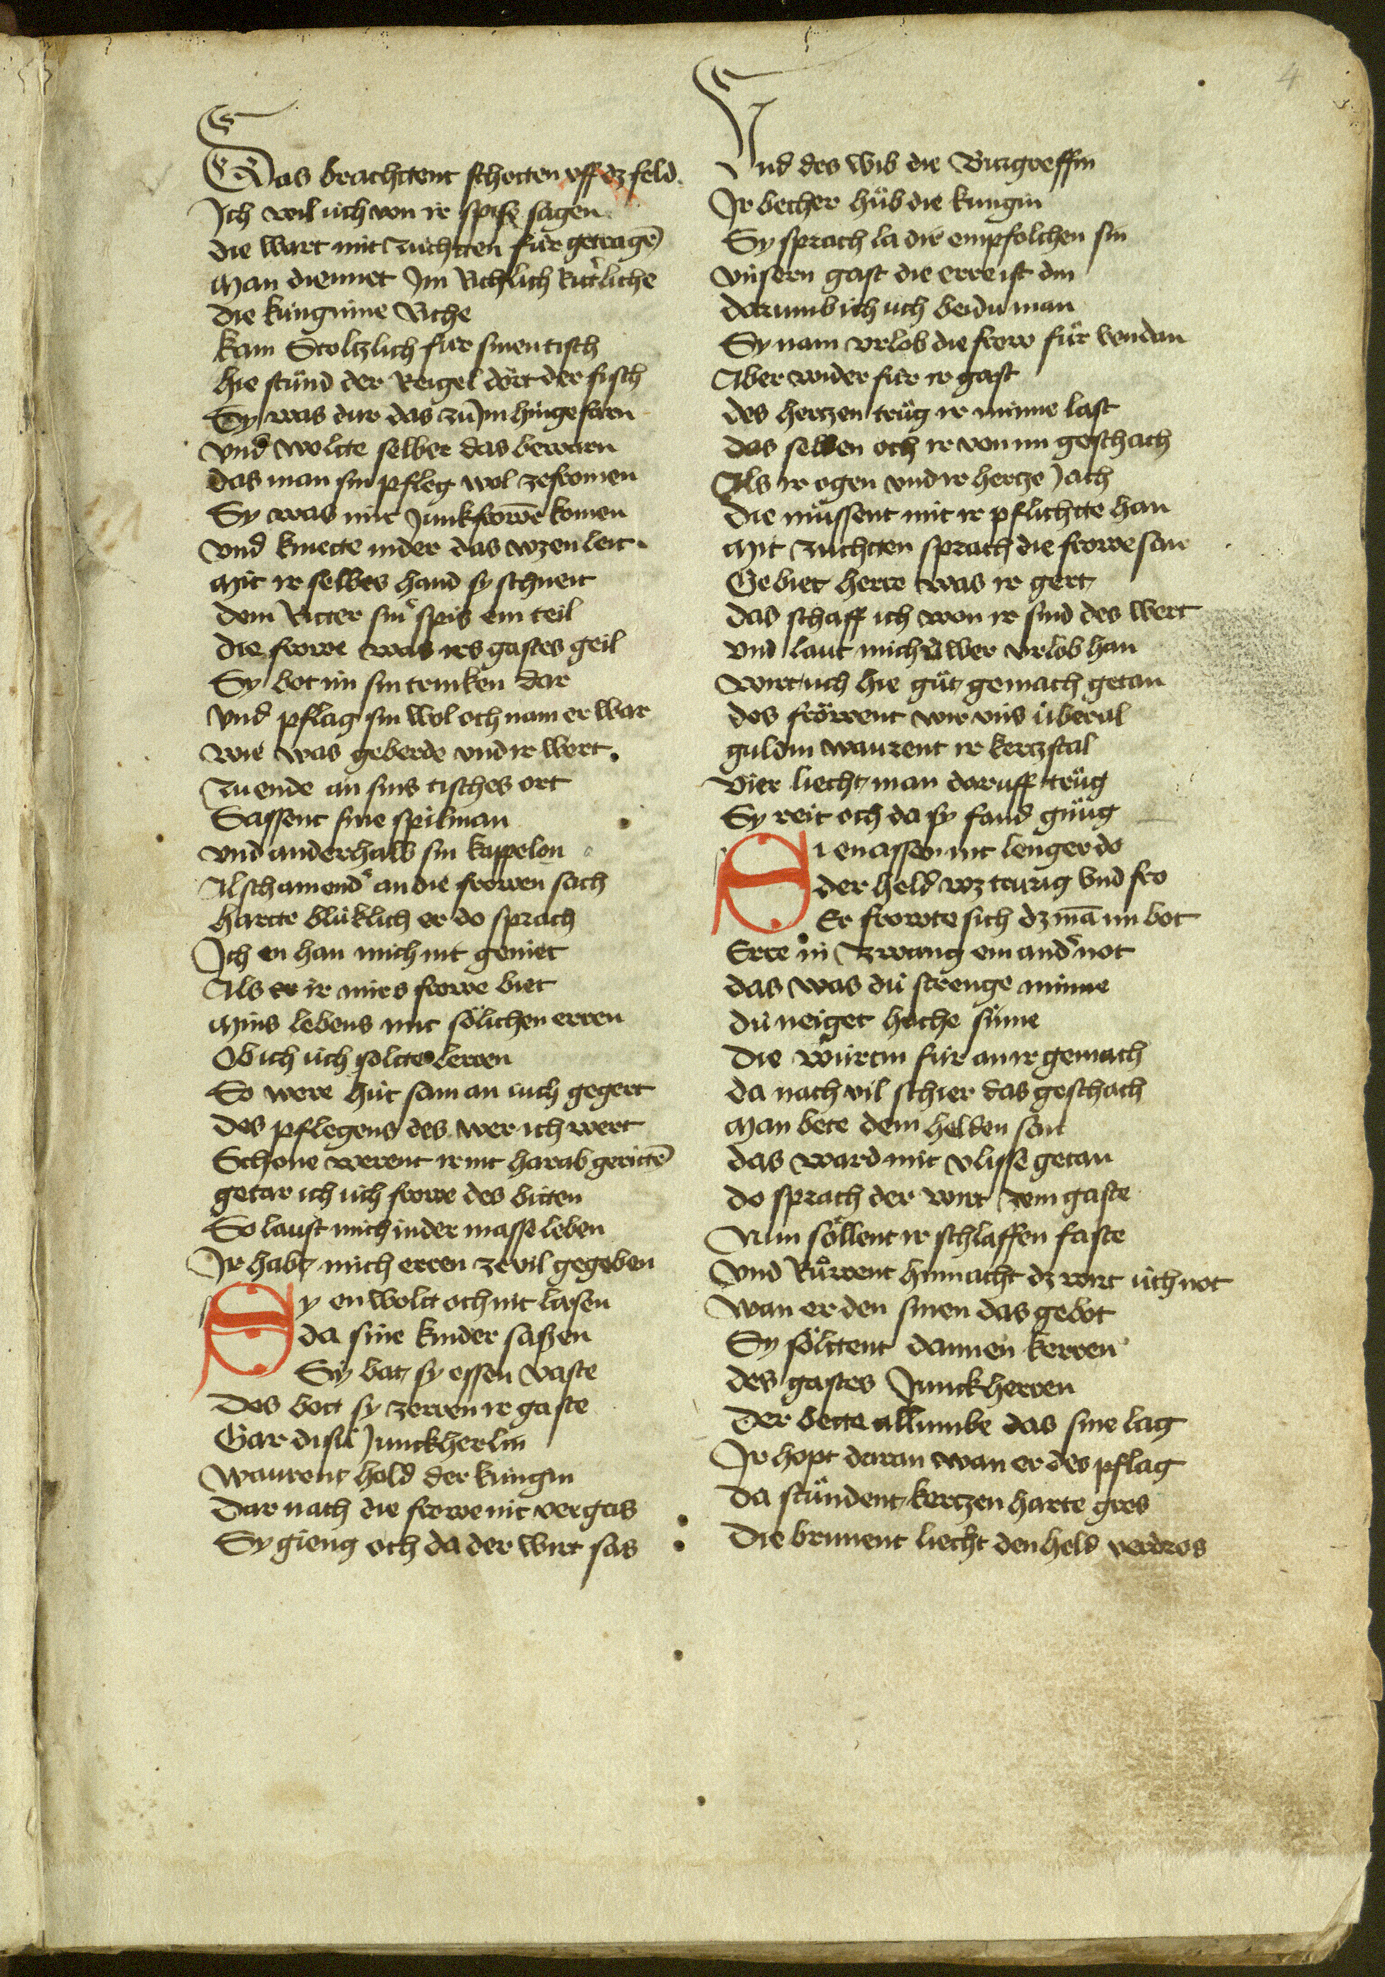 4
Das brachttent schotten vff dz feld
Ich wil üch von ir spise sagen
die wart mit zuchtten für getragē
Man diennet Im Richlich Ritt'liche
die künginne Riche
kam Stoltzlich für sinen tisch
hie stünd der Reigel dört der fisch
Sy was dur das zu Jm hin gefarn
vnd woltte selber das bewarn
das man sin pfleg wol ze fromen
Sy was mit Junkfrowē komen
vnd knuette nider das wz en leit
Mit ir selbes hand sy schneit
dem Ritter sin' spis ein teil
die frowe was irs gastes geil
Sy bot im sin trinken dar
vnd pflag sin wol och nam er war
wie was geberde vnd ir wort
Zu ende an sins tisches ort
Sassent sine spilman
vnd anderhalb sin kappelon
Al schamend' an die frowen sach
hartte blüklich er do sprach
Ich en han mich nit geniet
Als er ir mirs frowe biet
Mins lebens mit sölichen erren
Ob ich üch soltte lerren
So were hüt sam an iuch gegert
Des pflegens des wer ich wert
Schone werent ir nit harab gerittē
getar ich üch frowe des bitten
So laust mich in der masse leben
Ir habt mich erren ze vil gegeben
Sy en woltt och nit lasen
da sine kinder saßen
Sy bat sy essen vaste
Des bott sy zerren ir gaste
Gar disü Junckherlin
waurent hold der küngin
Dar nach die frowe nit vergas
Sy gieng och da der wirt sas
Vnd des wib die Burgreffin
Ir becher hüb die kungin
Sy sprach la dir empfolchen sin
vnsern gast die erre ist din
darumb ich uch beidu man
Sy nam vrlob die frow für von dan
Aber wider für ir gast
des hertzen trüg ir minne last
das selben och ir von im geschach
Als ir ogen vnd ir hertze Jach
die müssent mit ir pflichtte han
Mit zuchtten sprach die frowe san
Gebiet herre was ir gert
das schaff ich won ir sind des wert
vnd laut mich üwer vrlob han
wirt uch hie güt gemach getan
des fröwent wir vns überal
guldin waurent ir kerzstal
vier liecht man daruff trüg
Sy reit och da sy fand gnüg
Si en assen nit lenger do
der held wz trurig vnd fro
Er frowte sich dz mā im bot
Erre in zwang ein and' not
das was dü strenge minne
dü neiget hoche sinne
Die würtin für an ir gemach
da nach vil schier das geschach
Man bete dem helden san
das ward mit vlisse getan
do sprach der wirt zem gaste
Nun söllent ir schlaffen faste
vnd Rüwent hinnacht dz wirt üch not
wan er den sinen das gebot
Sy söltent dannen kerren
des gastes Junckherren
Der bette allumbe das sine lag
Ir hopt daran wan er des pflag
da stündent kertzen harte gros
Die brunent liecht den held verdros